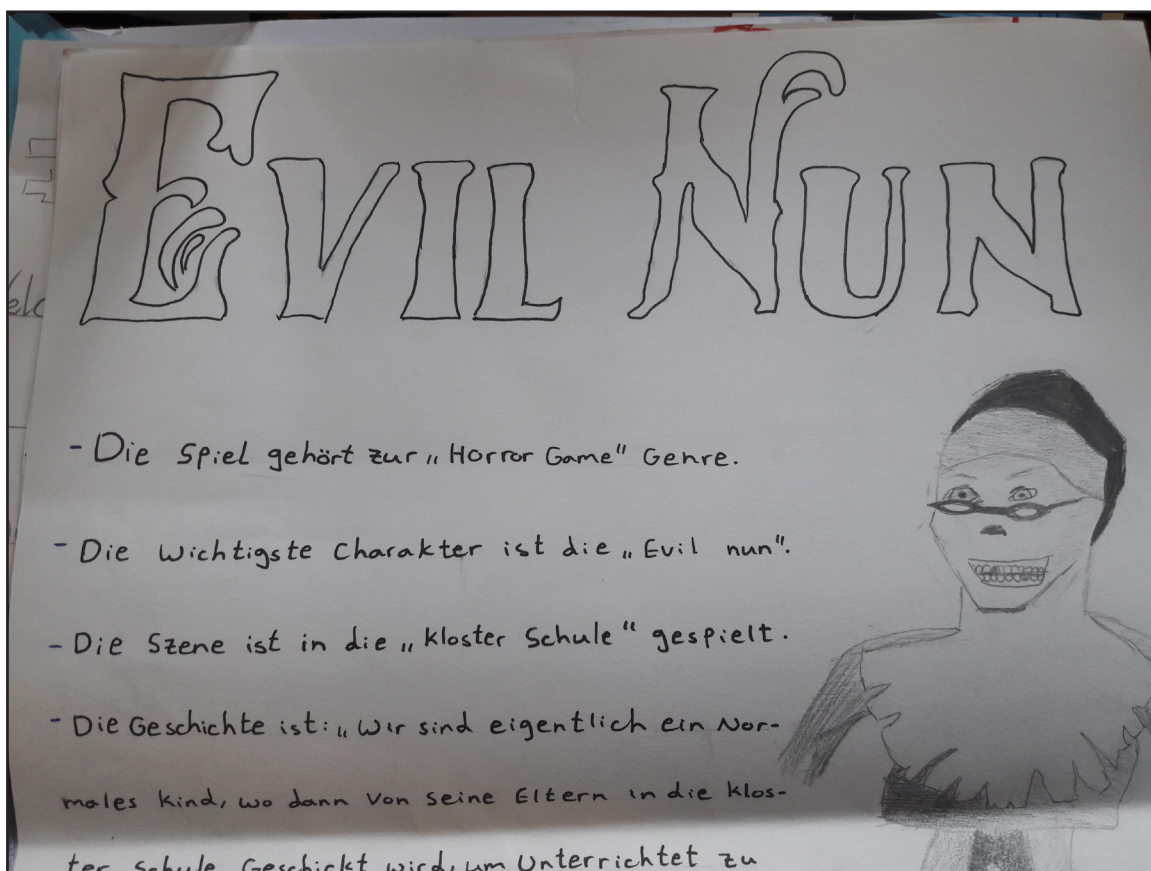 EVIL NUN
- Die Spiel gehört zur „Horror Game" Genre.
- Die wichtigste Charakter ist die „Evil nun".
- Die Szene ist in die „kloster Schule" gespielt.
- Die Geschichte ist: „Wir sind eigentlich ein Nor-
males Kind, wo dann von seine Eltern in die klos-
ter Schule Geschickt wird, um Unterrichtet zu